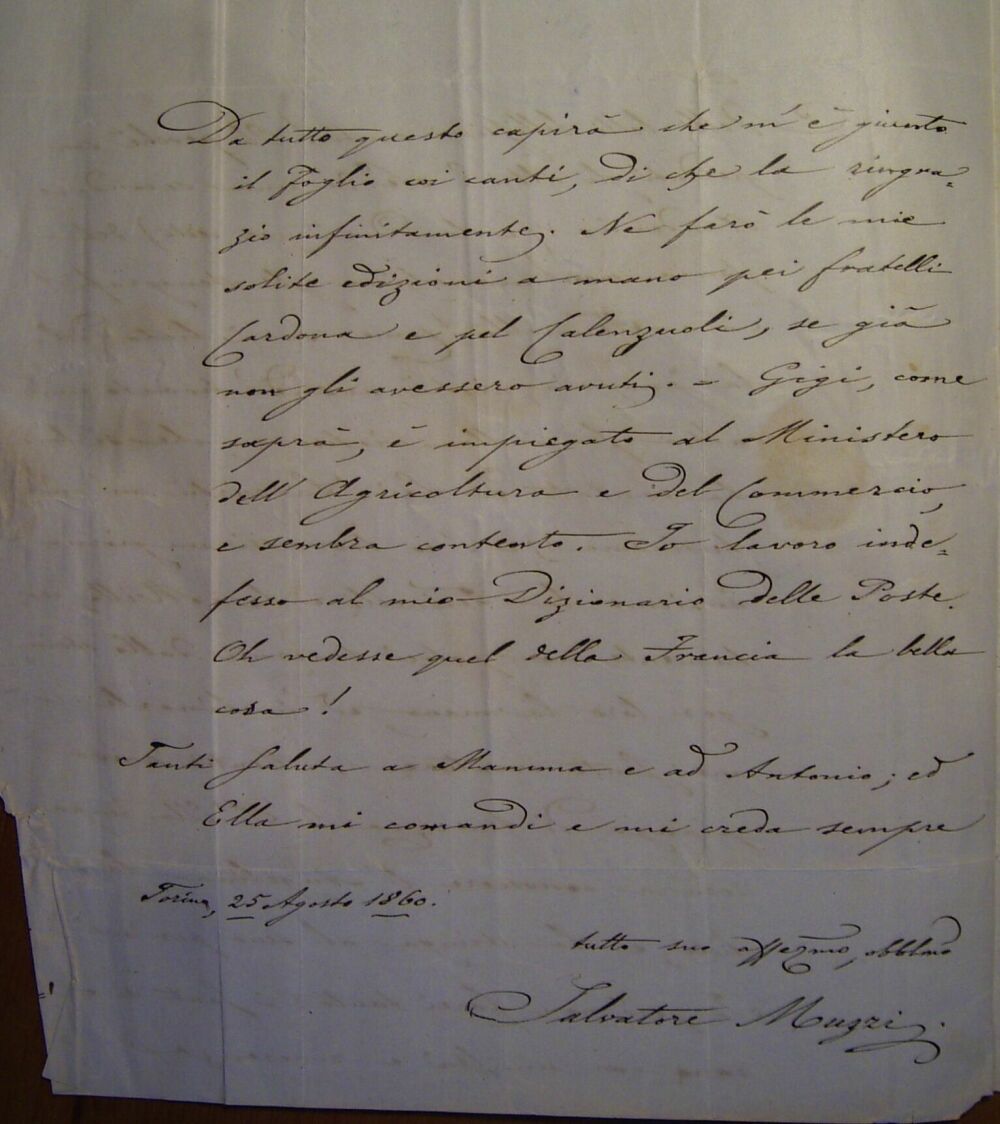 Da tutto questo capirà che m'è giunto
il foglio coi canti, di che la ringra=
zio infinitamente. Ne farò le mie
solite edizioni a mano pei fratelli
Cardona e pel Calenzuoli, se già
non gli avessero avuti. - Gigi, come
saprà, è impiegato al Ministero
dell'Agricoltura e del Commercio,
e sembra contento. Io lavoro inde=
fesso al mio Dizionario delle Poste.
Oh vedesse quel della Francia la bella
cosa!
Tanti saluti a Mamma e ad Antonio; ed
Ella mi comandi e mi creda sempre
Torino, 25 Agosto 1860.
tutto suo affezmo, obblmo
Salvatore Muzzi.